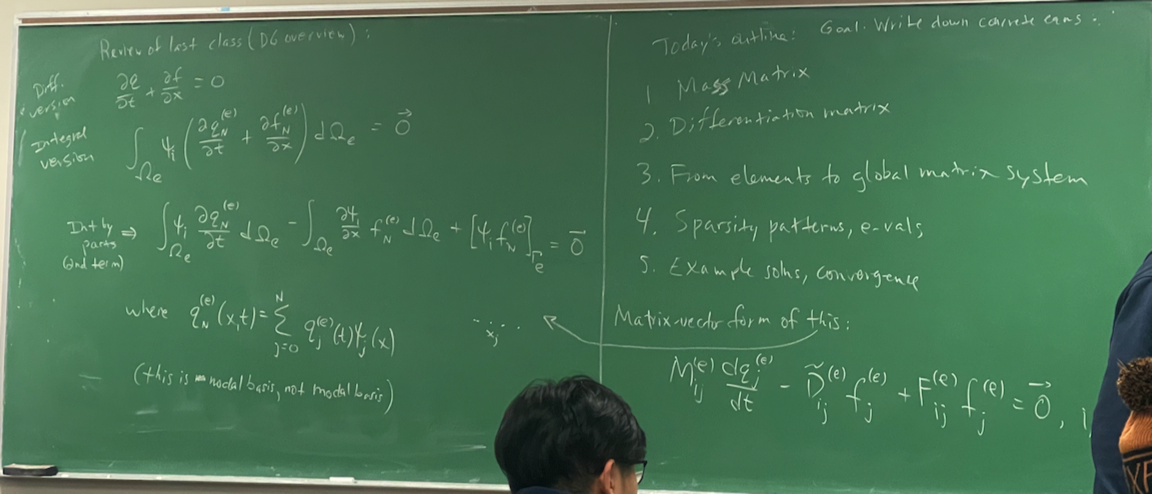 Review of last class (DG overview):
Diff. version
∂q/∂t + ∂f/∂x = 0
Integral version
∫_Ωe ψ_i (∂q_N^(e)/∂t + ∂f_N^(e)/∂x) dΩ_e = 0⃗
Int by parts (2nd term) ⇒ ∫_Ωe ψ_i ∂q_N^(e)/∂t dΩ_e - ∫_Ωe ∂ψ_i/∂x f_N^(e) dΩ_e + [ψ_i f_N^(e)]_Γe = 0⃗
where q_N^(e)(x,t) = Σ_{j=0}^{N} q_j^(e)(t) ψ_j(x)
x_j
(this is nodal basis, not modal basis)
Today's outline: Goal: Write down concrete eqns.
1 Mass Matrix
2. Differentiation matrix
3. From elements to global matrix system
4. Sparsity patterns, e-vals
5. Example solns, convergence
Matrix-vector form of this:
M_ij^(e) dq_j^(e)/dt - D̃_ij^(e) f_j^(e) + F_ij^(e) f_j^(e) = 0⃗, i
XF